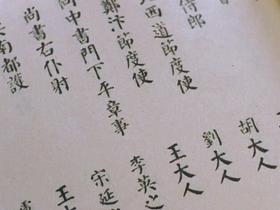 侍郎
西道節度使
鄭汴節度使
中書門下平章事
尚書右仆射
南都護
胡大人
劉大人
王大人
李英之
宋延
王